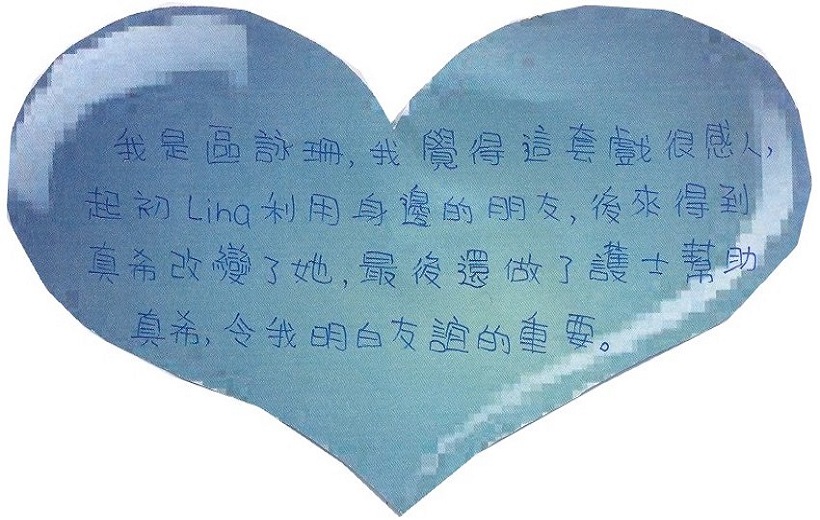 我是區詠珊,我覺得這套戲很感人,
起初Lina利用身邊的朋友,後來得到
真希改變了她,最後還做了護士幫助
真希,令我明白友誼的重要。